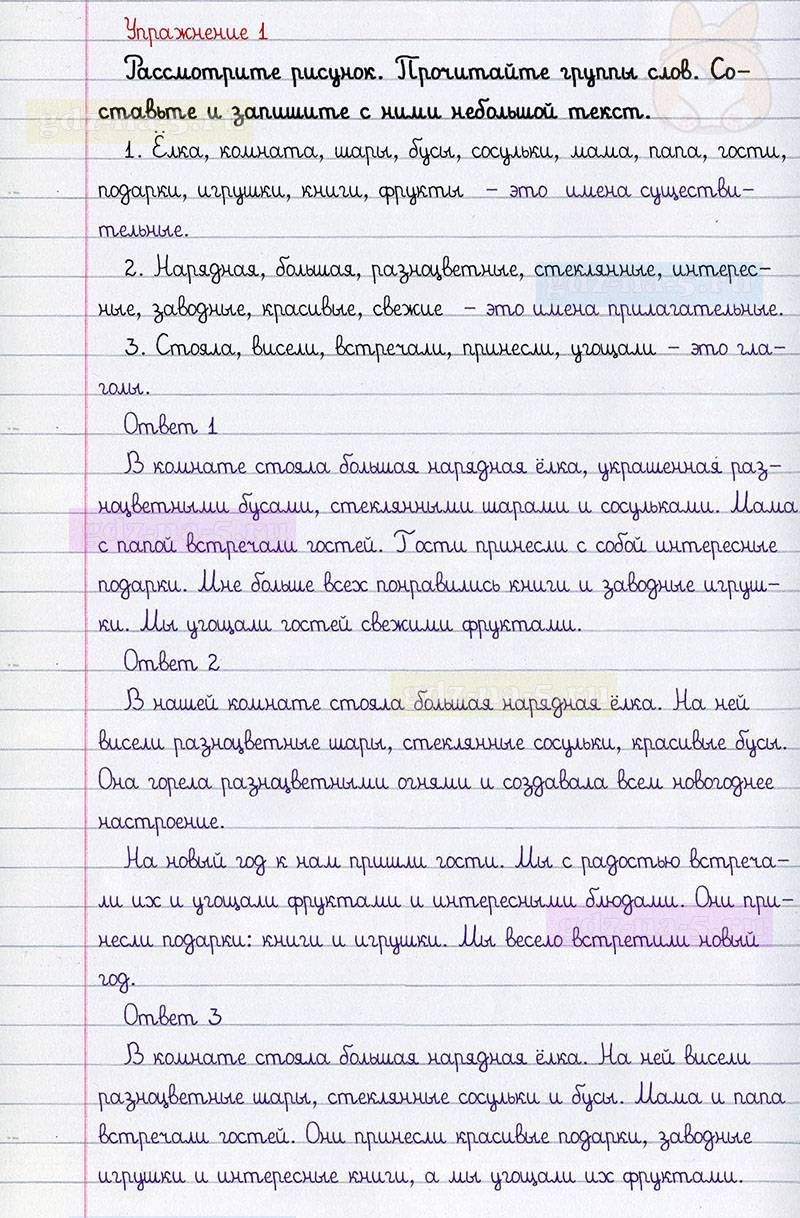 Упражнение 1
Рассмотрите рисунок. Прочитайте группы слов. Со-
ставьте и запишите с ними небольшой текст.
1. Ёлка, комната, шары, бусы, сосульки, мама, папа, гости,
подарки, игрушки, книги, фрукты - это имена существи-
тельные.
2. Нарядная, большая, разноцветные, стеклянные, интерес-
ные, заводные, красивые, свежие - это имена прилагательные.
3. Стояла, висели, встречали, принесли, угощали - это гла-
голы.
Ответ 1
В комнате стояла большая нарядная ёлка, украшенная раз-
ноцветными бусами, стеклянными шарами и сосульками. Мама
с папой встречали гостей. Гости принесли с собой интересные
подарки. Мне больше всех понравились книги и заводные игруш-
ки. Мы угощали гостей свежими фруктами.
Ответ 2
В нашей комнате стояла большая нарядная ёлка. На ней
висели разноцветные шары, стеклянные сосульки, красивые бусы.
Она горела разноцветными огнями и создавала всем новогоднее
настроение.
На новый год к нам пришли гости. Мы с радостью встреча-
ли их и угощали фруктами и интересными блюдами. Они при-
несли подарки: книги и игрушки. Мы весело встретили новый
год.
Ответ 3
В комнате стояла большая нарядная ёлка. На ней висели
разноцветные шары, стеклянные сосульки и бусы. Мама и папа
встречали гостей. Они принесли красивые подарки, заводные
игрушки и интересные книги, а мы угощали их фруктами.
gdz-na-5.ru
gdz-na-5.ru
gdz-na-5.ru
gdz-na-5.ru
gdz-na-5.ru